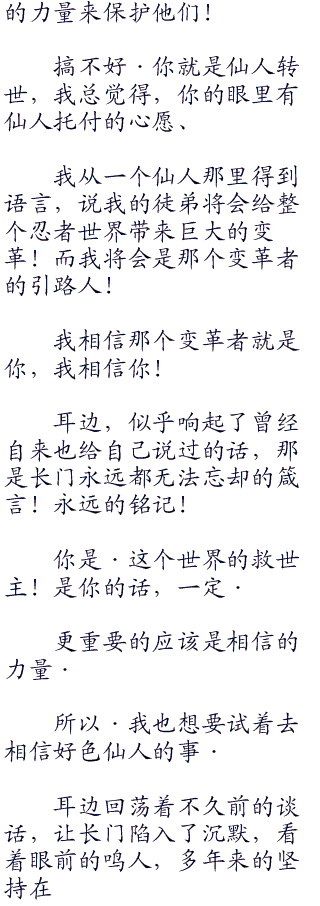 的力量来保护他们！
搞不好·你就是仙人转
世，我总觉得，你的眼里有
仙人托付的心愿、
我从一个仙人那里得到
语言，说我的徒弟将会给整
个忍者世界带来巨大的变
革！而我将会是那个变革者
的引路人！
我相信那个变革者就是
你，我相信你！
耳边，似乎响起了曾经
自来也给自己说过的话，那
是长门永远都无法忘却的箴
言！永远的铭记！
你是·这个世界的救世
主！是你的话，一定·
更重要的应该是相信的
力量·
所以·我也想要试着去
相信好色仙人的事·
耳边回荡着不久前的谈
话，让长门陷入了沉默，看
着眼前的鸣人，多年来的坚
持在